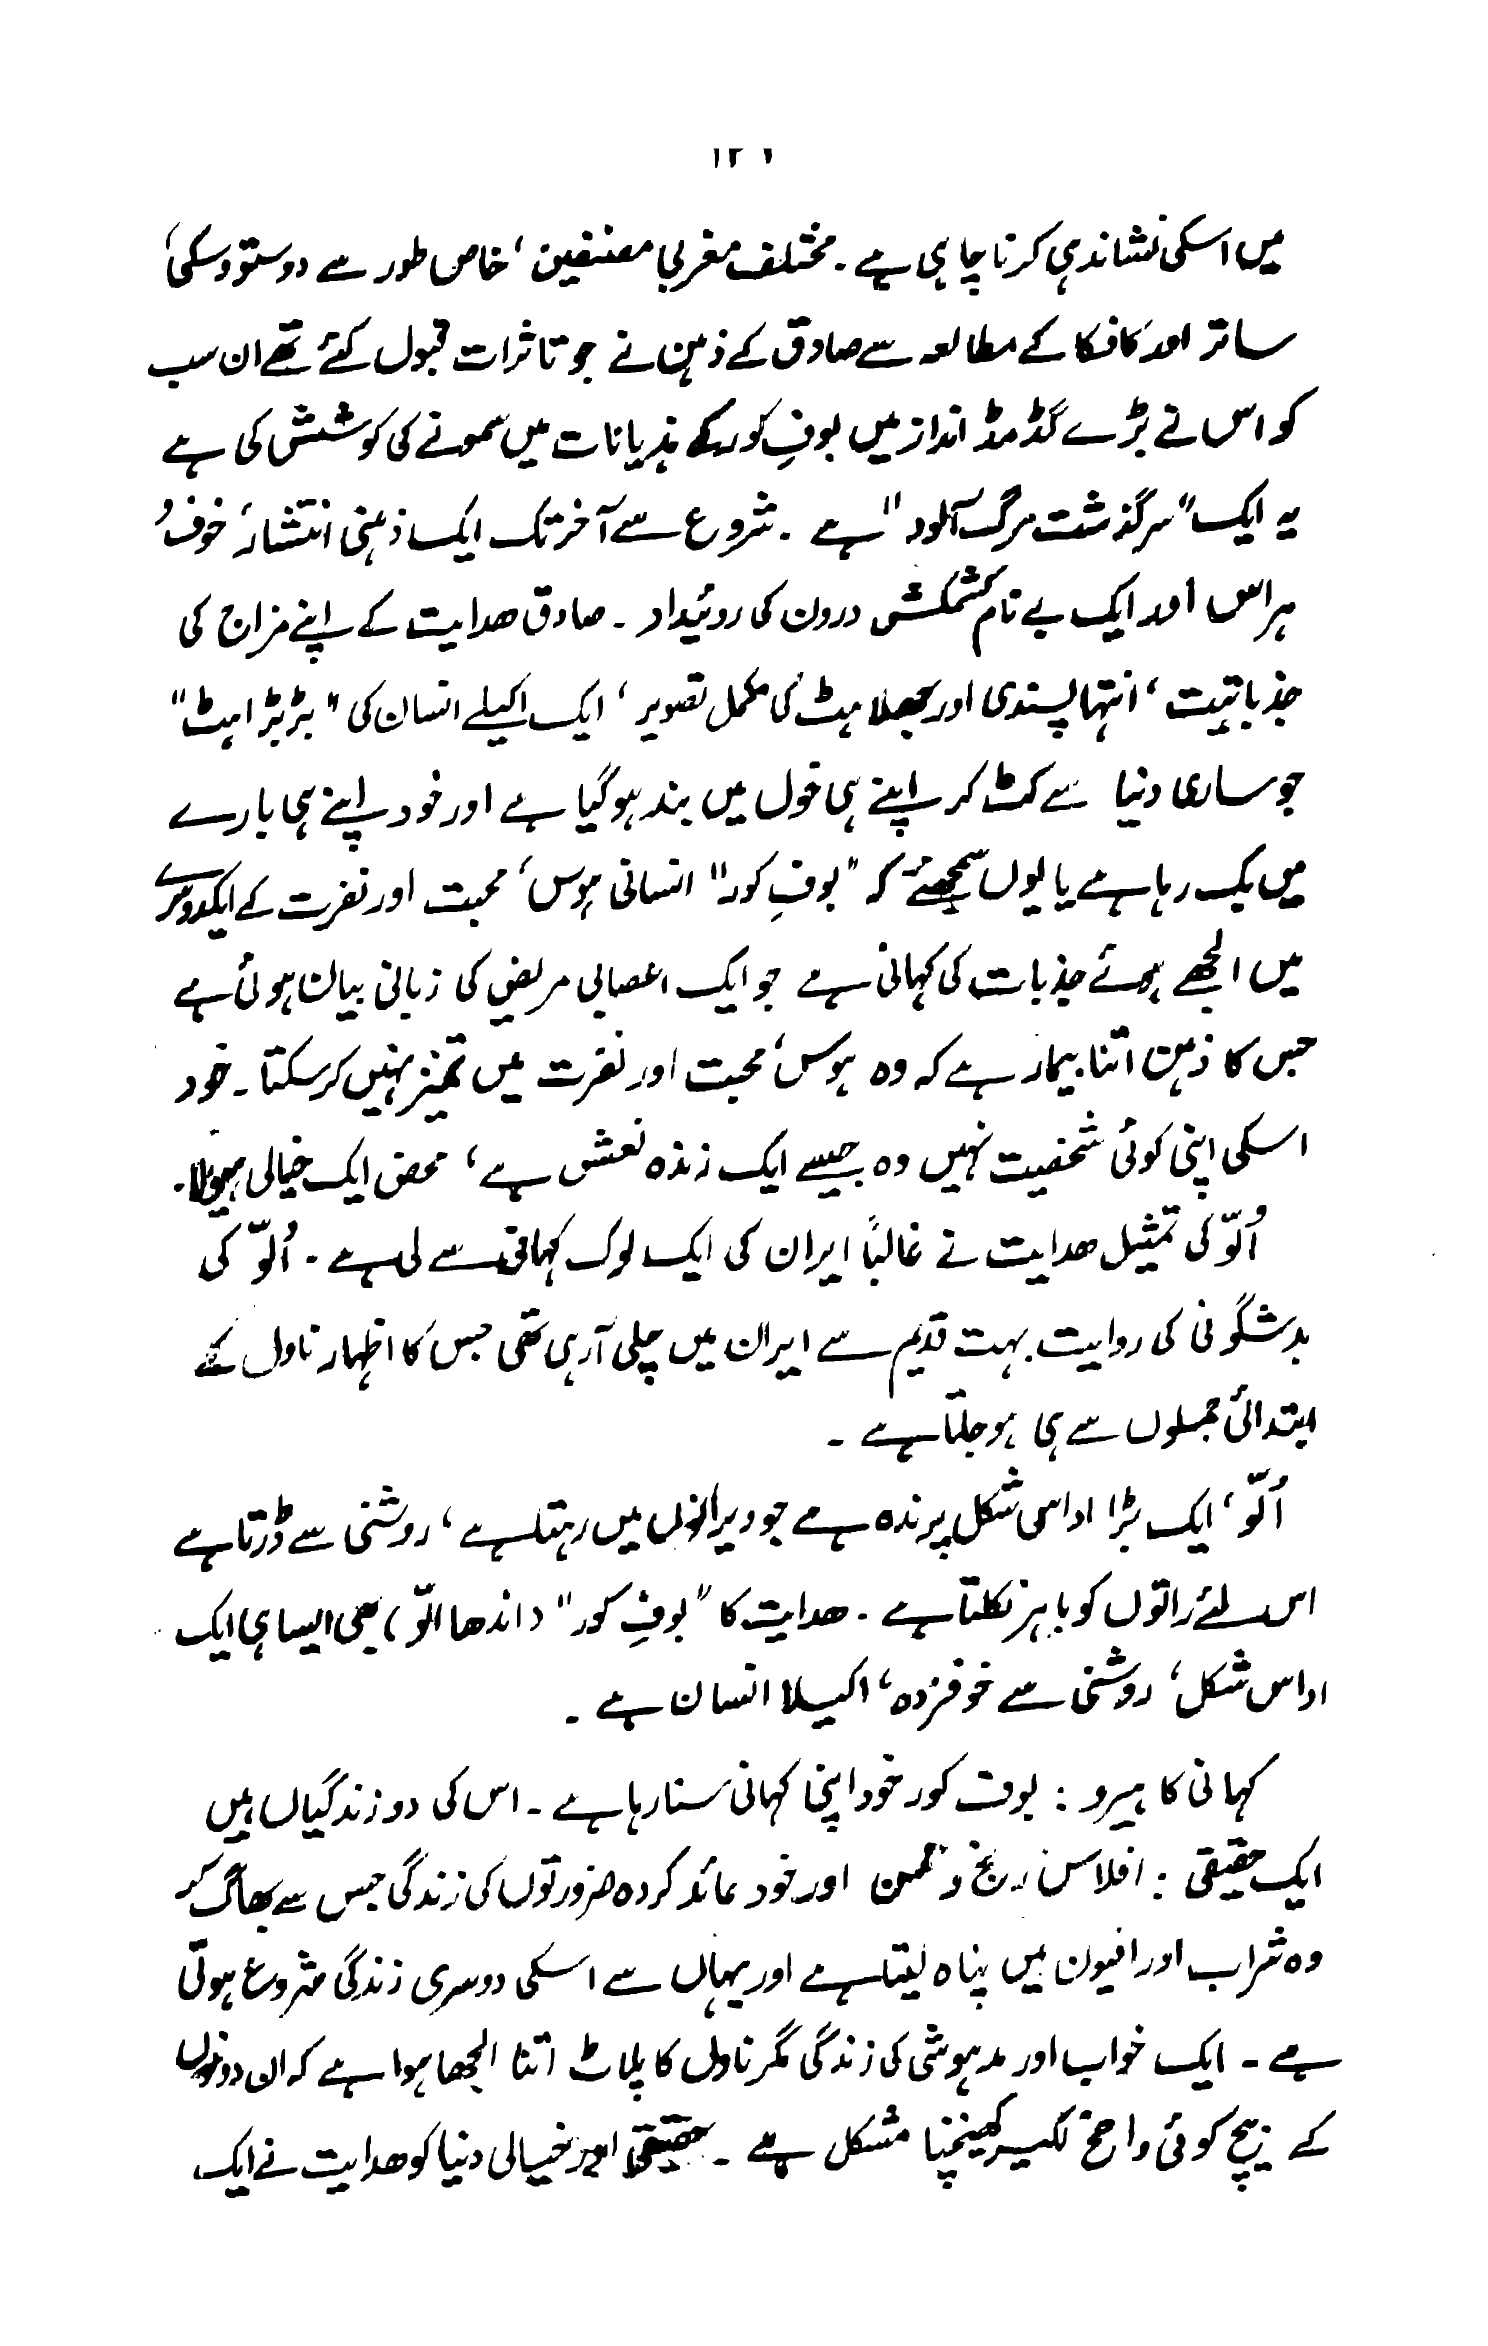 ۱۲۱
میں اسکی نشاندہی کرنا چاہی ہے ۔ مختلف مغربی مصنفین ، خاص طور سے دوستووسکی ،
سارتر اور کافکا کے مطالعہ سے صادق کے ذہن نے جو تاثرات قبول کئے تھے ان سب
کو اس نے بڑے گڈمڈ انداز میں بوفِ کور کے ہذیانات میں سمونے کی کوشش کی ہے
یہ ایک "سرگذشت مرگ آلود" ہے ۔ شروع سے آخر تک ایک ذہنی انتشار ، خوف و
ہراس اور ایک بے نام کشمکش درون کی روئیداد ۔ صادق ھدایت کے اپنے مزاج کی
جذباتیت ، انتہا پسندی اور جھلاہٹ کی مکمل تصویر ، ایک اکیلے انسان کی "بڑبڑاہٹ"
جو ساری دنیا سے کٹ کر اپنے ہی خول میں بند ہوگیا ہے اور خود اپنے ہی بارے
میں بک رہا ہے یا یوں سمجھئے کہ "بوفِ کور" انسانی ہوس ، محبت اور نفرت کے ایکدوسرے
میں الجھے ہوئے جذبات کی کہانی ہے جو ایک اعصابی مریض کی زبانی بیان ہوئی ہے
جس کا ذہن اتنا بیمار ہے کہ وہ ہوس ، محبت اور نفرت میں تمیز نہیں کرسکتا ۔ خود
اسکی اپنی کوئی شخصیت نہیں وہ جیسے ایک زندہ نعش ہے ، محض ایک خیالی ہیولا ۔
اُلّو کی تمثیل ھدایت نے غالباً ایران کی ایک لوک کہانی سے لی ہے ۔ اُلّو کی
بدشگونی کی روایت بہت قدیم سے ایران میں چلی آرہی تھی جس کا اظہار ناول کے
ابتدائی جملوں سے ہی ہوجاتا ہے ۔
اُلّو ، ایک بڑا اداسی شکل پرندہ ہے جو ویرانوں میں رہتا ہے ، روشنی سے ڈرتا ہے
اس لئے راتوں کو باہر نکلتا ہے ۔ ھدایت کا "بوفِ کور" (اندھا الّو) بھی ایسا ہی ایک
اداس شکل ، روشنی سے خوفزدہ ، اکیلا انسان ہے ۔
کہانی کا ہیرو : بوف کور خود اپنی کہانی سنا رہا ہے ۔ اس کی دو زندگیاں ہیں
ایک حقیقی : افلاس ، رنج و محن اور خود عائد کردہ ضرورتوں کی زندگی جس سے بھاگ کر
وہ شراب اور افیون میں پناہ لیتا ہے اور یہاں سے اسکی دوسری زندگی شروع ہوتی
ہے ۔ ایک خواب اور مدہوشی کی زندگی مگر ناول کا پلاٹ اتنا الجھا ہوا ہے کہ ان دونوں
کے بیچ کوئی واضح لکیر کھینچنا مشکل ہے ۔ حقیقی اور خیالی دنیا کو ھدایت نے ایک